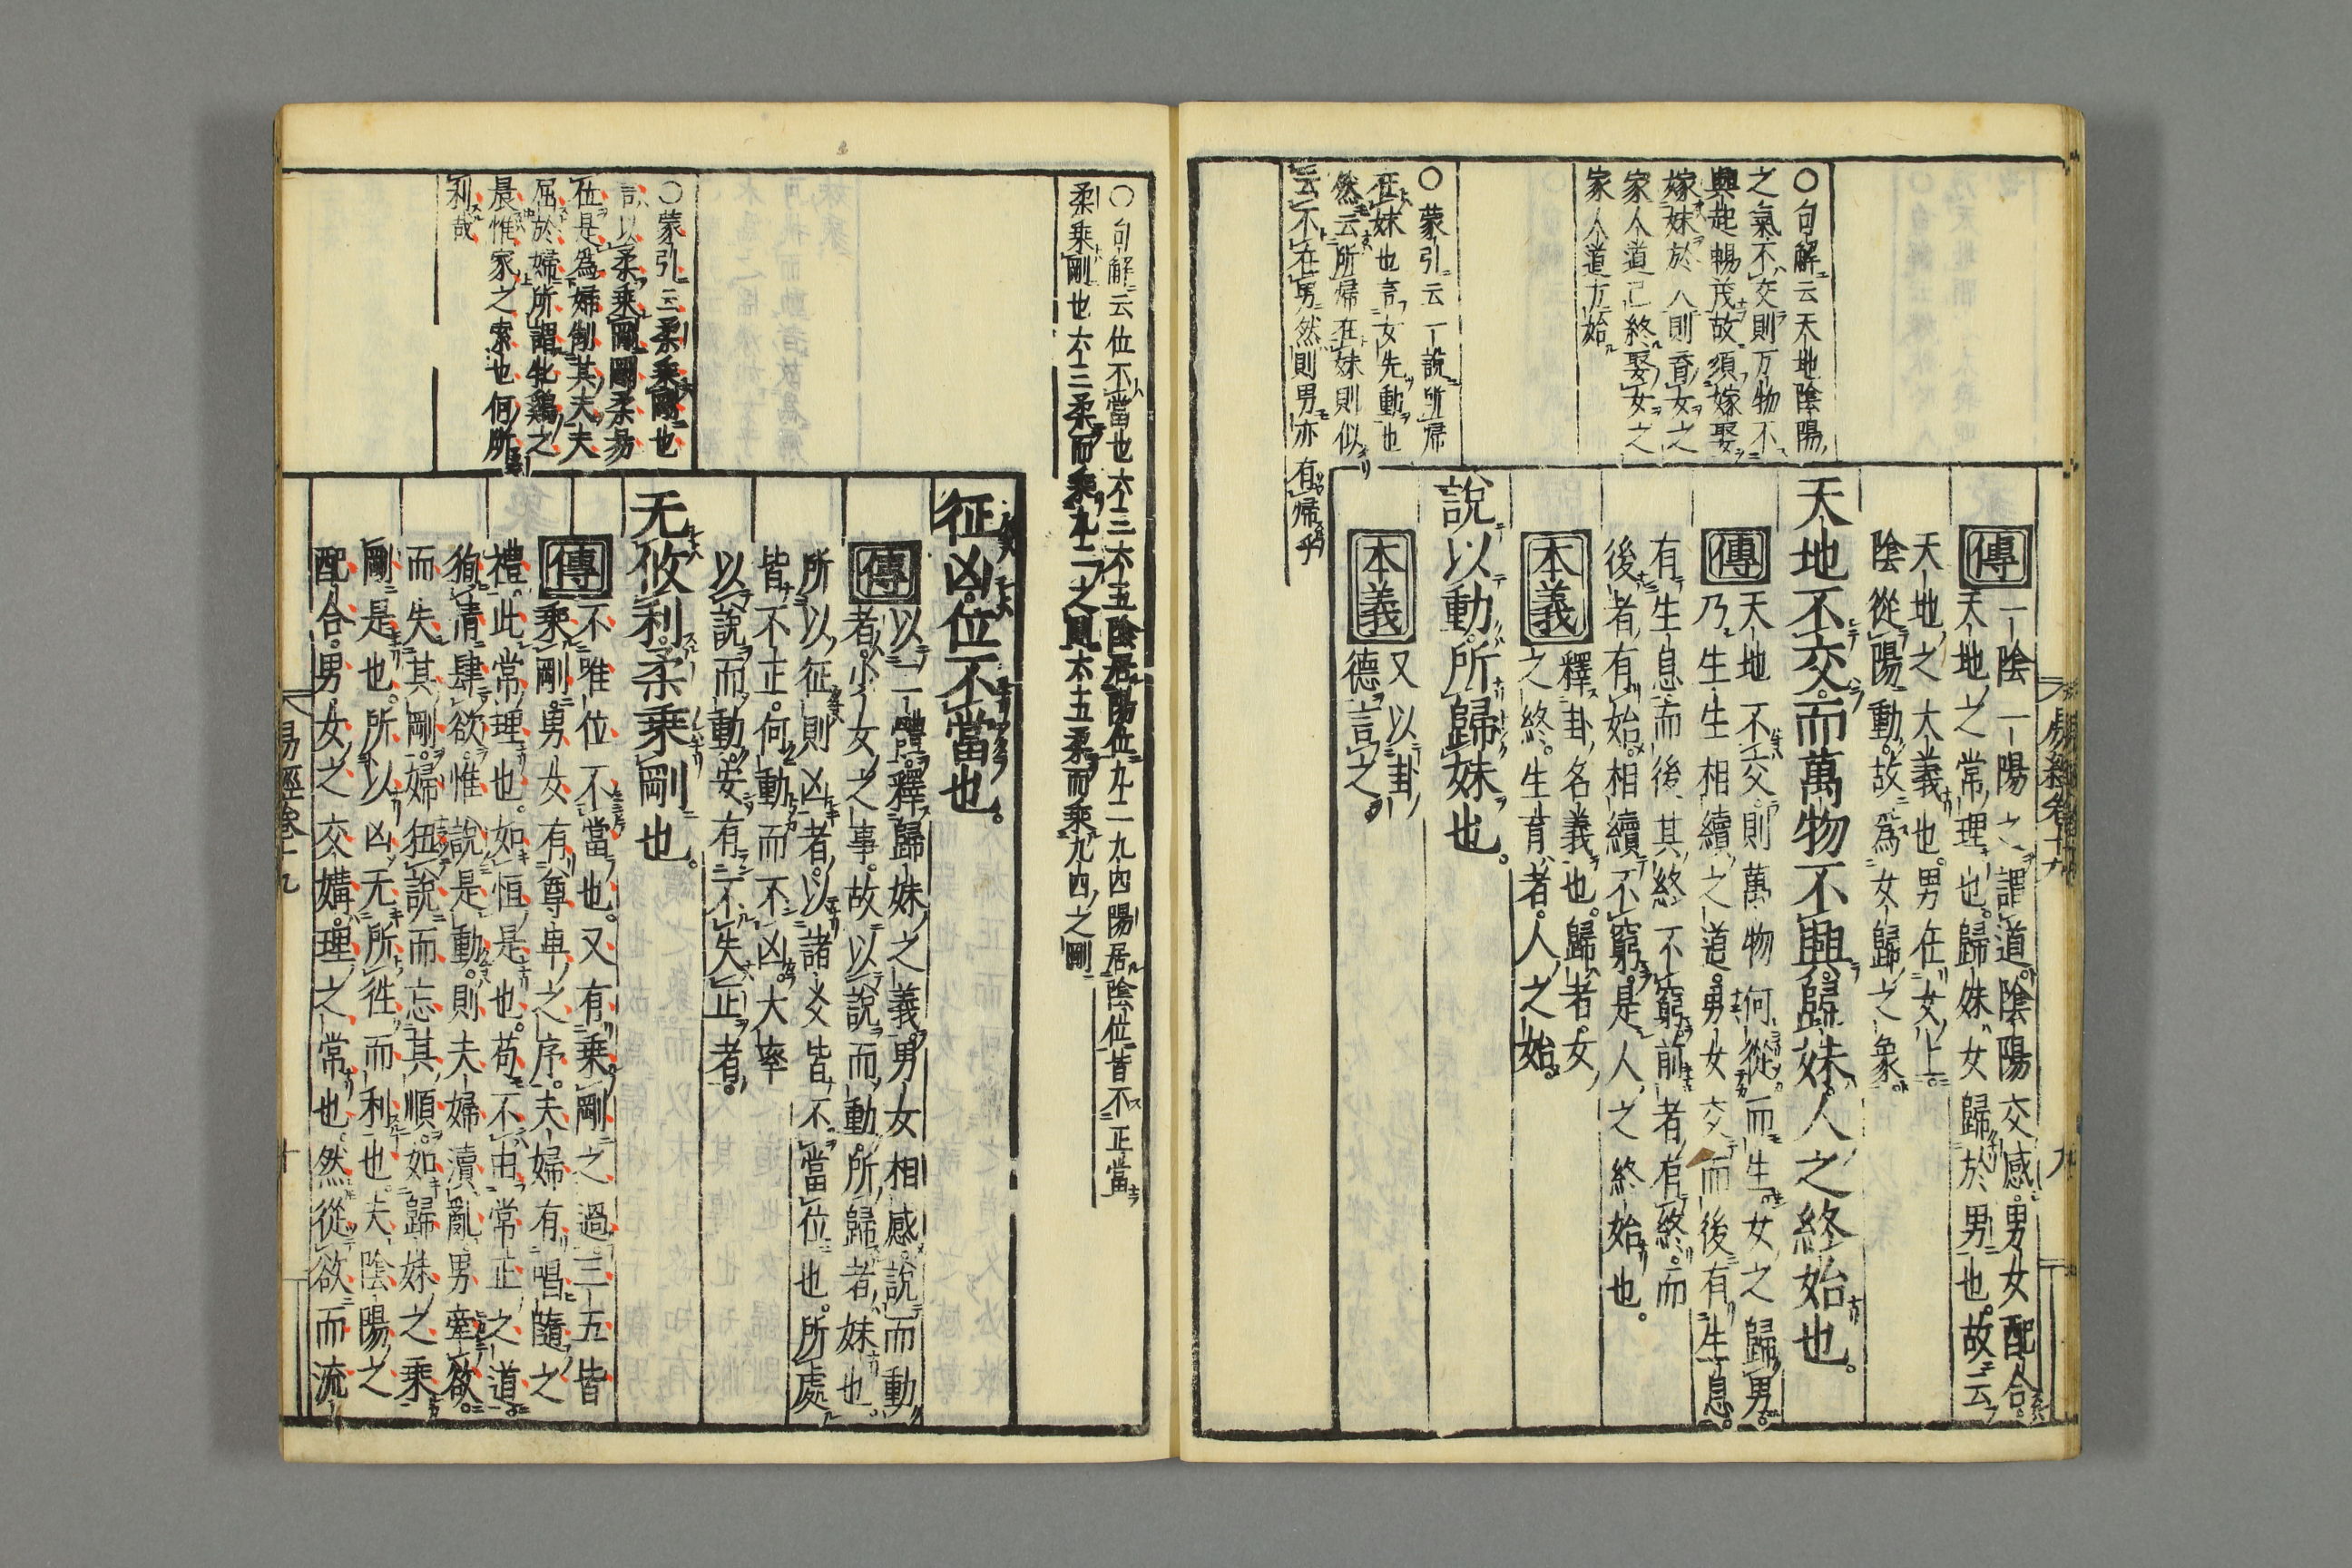 ○句解云天地陰陽
之氣不交則万物不
興起暢茂故須嫁娶
嫁妹於人則育女之
家人道已終娶女之
家人道方始
○蒙引云一說所歸
在妹也言女先動也
然云所歸在妹則似
云不在男然則男亦有歸乎
傳 一陰一陽之謂道陰陽交感男女配合
天地之常理也歸妹女歸於男也故云
天地之大義也男在女上
陰從陽動故為女歸之象
天地不交而萬物不興歸妹人之終始也
傳 天地不交則萬物何從而生女之歸男
乃生生相續之道男女交而後有生息
有生息而後其終不窮前者有終而
後者有始相續不窮是人之終始也
本義 釋卦名義也歸者女
之終生育者人之始
說以動所歸妹也
本義 又以卦
德言之
○句解云位不當也六三六五陰居陽位九二九四陽居陰位皆不正當
柔乘剛也六三柔而乘九二之剛六五柔而乘九四之剛
○蒙引云柔乘剛也
言以柔乘剛剛柔易
位是為婦制其夫夫
屈於婦所謂牝鷄之
晨惟家之索也何所
利哉
征凶位不當也
傳 以二體釋歸妹之義男女相感說而動
者少女之事故以說而動所歸者妹也
所以征則凶者以諸爻皆不當位也所處
皆不正何動而不凶大率
以說而動安有不失正者
无攸利柔乘剛也
傳 不唯位不當也又有乘剛之過三五皆
乘剛男女有尊卑之序夫婦有唱隨之
禮此常理也如恒是也苟不由常正之道
徇情肆欲惟說是動則夫婦瀆亂男牽欲
而失其剛婦狃說而忘其順如歸妹之乘
剛是也所以凶无所往而利也夫陰陽之
配合男女之交媾理之常也然從欲而流
易經卷十九
十